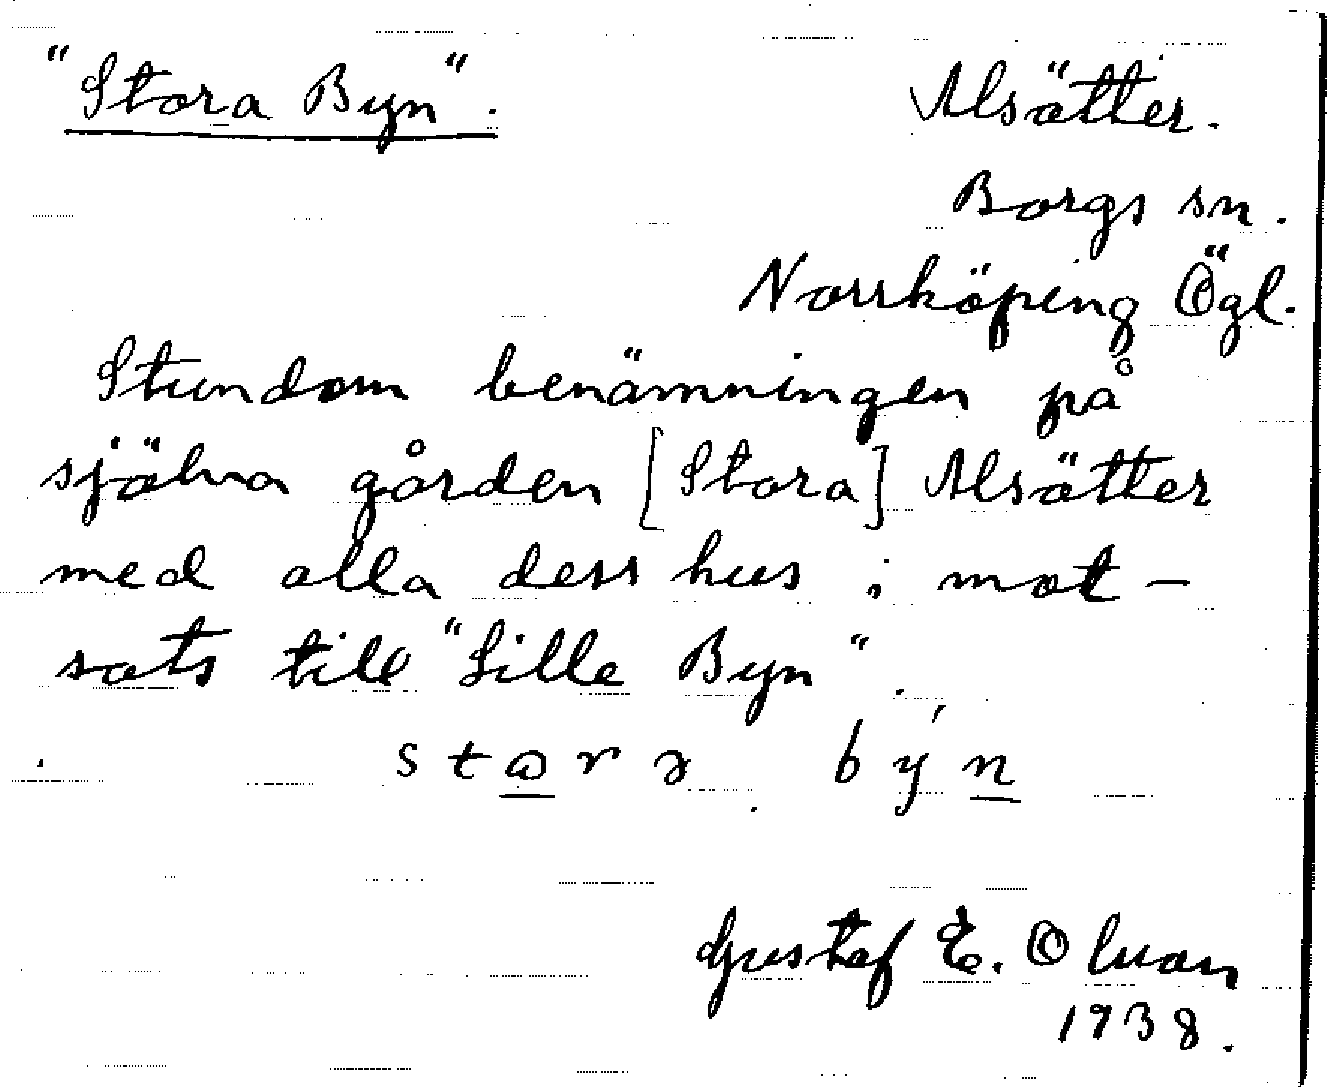 "Stora Byn".
Alsätter.
Borgs sn.
Norrköping Ögl.
Stundom benämningen på
själva gården [Stora] Alsätter
med alla dess hus i mot-
sats till "Lille Byn".
býn
Gustaf E. Oluan
1938.